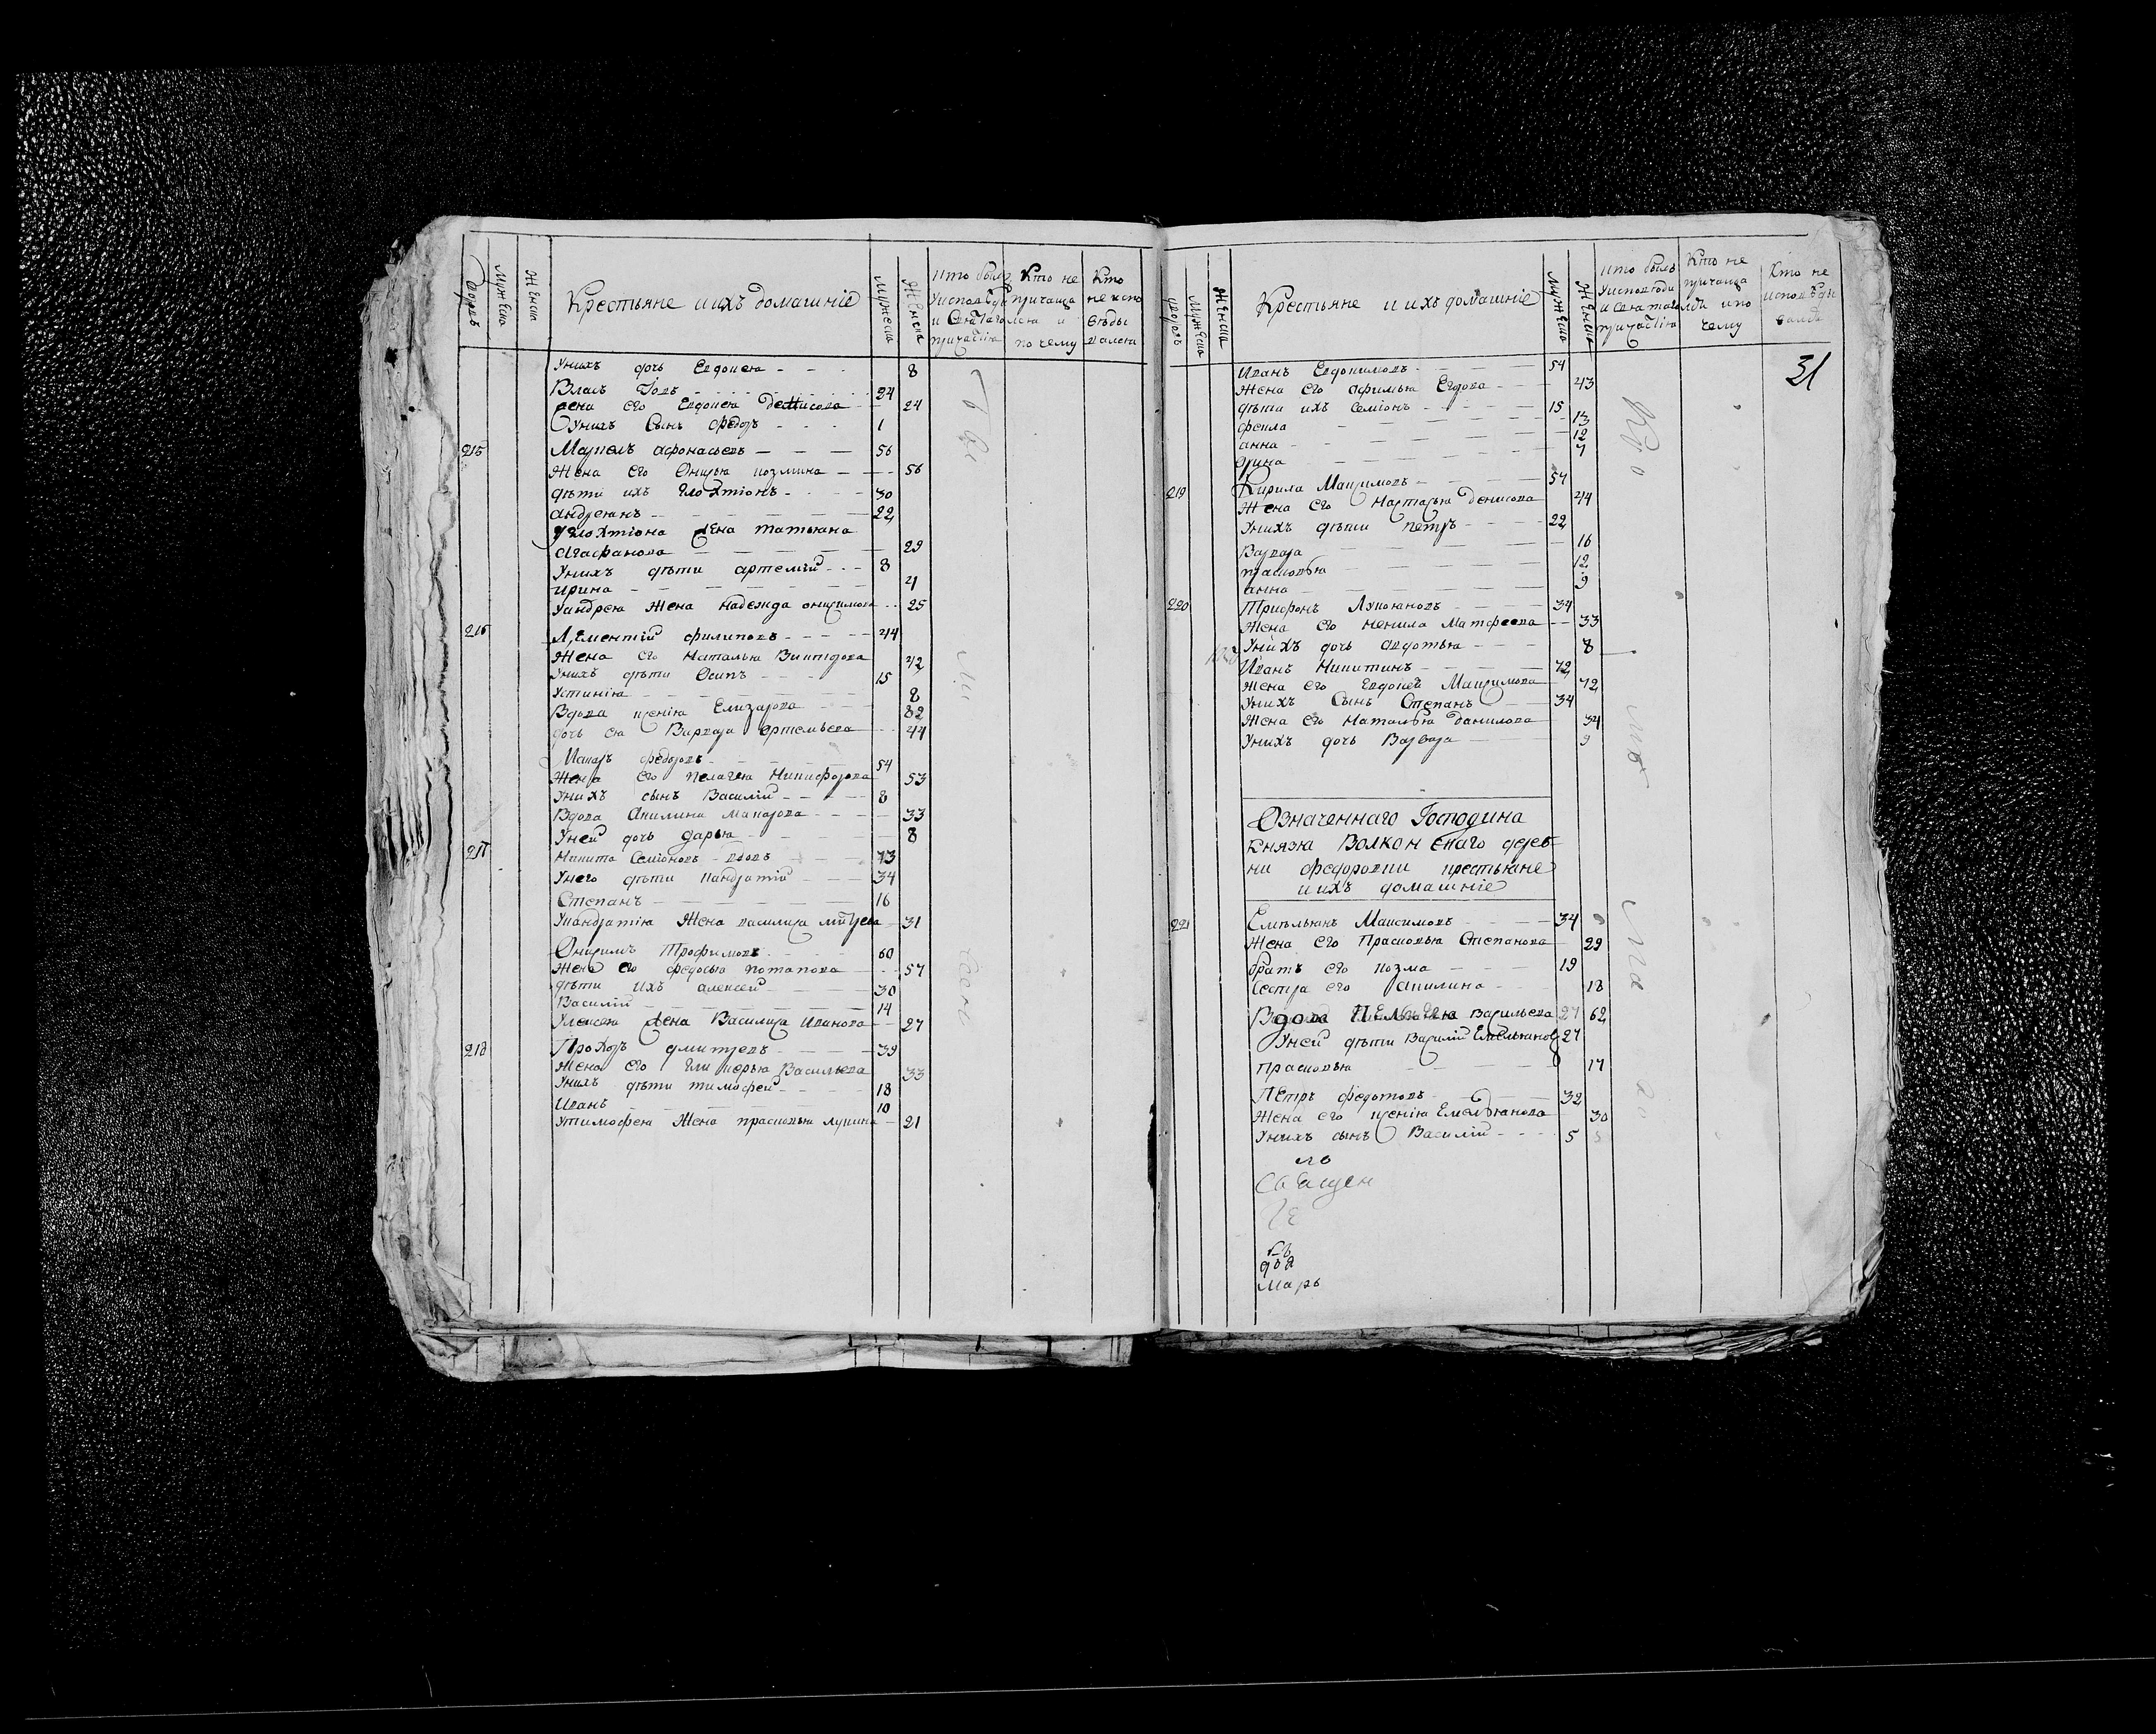 Дворовъ
Мужеска
Женска
Крестьяне и ихъ домашніе
Мужеска
Женска
Кто былъ у исповѣди и святаго причастія
Кто не причаща лся и по чему
Кто не испо вѣды вался
у нихъ дочь Евдокея 8
Власъ 24
жена его Евдокея Денисова 24
у нихъ сынъ Федоръ 1
215 Маркелъ Афонасьевъ 56
Жена его козмина 56
дѣти ихъ Евлохтіонъ 30
андреянъ 22
У Евлохтіона жена татьяна
Агафанова 29
У нихъ дѣти артемій 8
ирина 4
У андрея жена надежда онисимова 25
216 Лементій филиповъ 44
Жена его Наталья 42
У нихъ дѣти Осипъ 15
Устинія 8
Вдова ксенія Елизарова 82
дочь ея Варвара артемьева 44
Макаръ федоровъ 54
Жена его пелагея Никифорова 53
У нихъ сынъ Василій 8
Вдова Акилина макарова 33
У ней дочь дарья 8
217 Никита Семіоновъ вдовъ 73
У него дѣти кандратій 34
Степанъ 16
У кандратія жена василиса 31
Онисимъ Трофимовъ 60
Жена его федосья потапова 57
дѣти ихъ алексей 30
Василій 14
У алексея жена Василиса Иванова 27
218 Прохоръ дмитревъ 39
Жена его Гликерья Васильева 33
У нихъ дѣти тимофей 18
Иванъ 10
У тимофея жена прасковья лукина 21
дворовъ
Мужеска
Женска
Крестьяне и ихъ домашніе
Мужеска
Женска
Кто былъ у исповѣди и святаго причастія
Кто не причаща лся и по чему
Кто не исповѣды вался
31
Иванъ Евдокимовъ 54
Жена его афимья 43
дѣти ихъ Семіонъ 15
фекла 13
анна 12
орина 7
219 Кирила Максимовъ 54
Жена его Настасья Денисова 44
У нихъ дѣти петръ 22
Варвара 16
прасковья 12
анна 9
220 Трифонъ Лукояновъ 34
Жена его ненила Матфеева 33
У нихъ дочь авдотья 8
Иванъ Никитинъ 72
жена его Евдокея Максимова 72
У нихъ сынъ Степанъ 34
Жена его Наталья Данилова 34
У нихъ дочь Варвара 9
Означеннаго Господина
Князя Волконскаго дерев
ни федоровки крестьяне
и ихъ домашніе
221 Емельянъ Максимовъ 34
Жена его Прасковья Степанова 29
братъ его козма 19
Сестра его Акилина 18
Вдова Пелагея Васильева 62
У ней дѣти Василій Емельяновъ 27
прасковья 17
Петръ федотовъ 32
Жена его ксенія Емельянова 30
У нихъ сынъ Василій 5